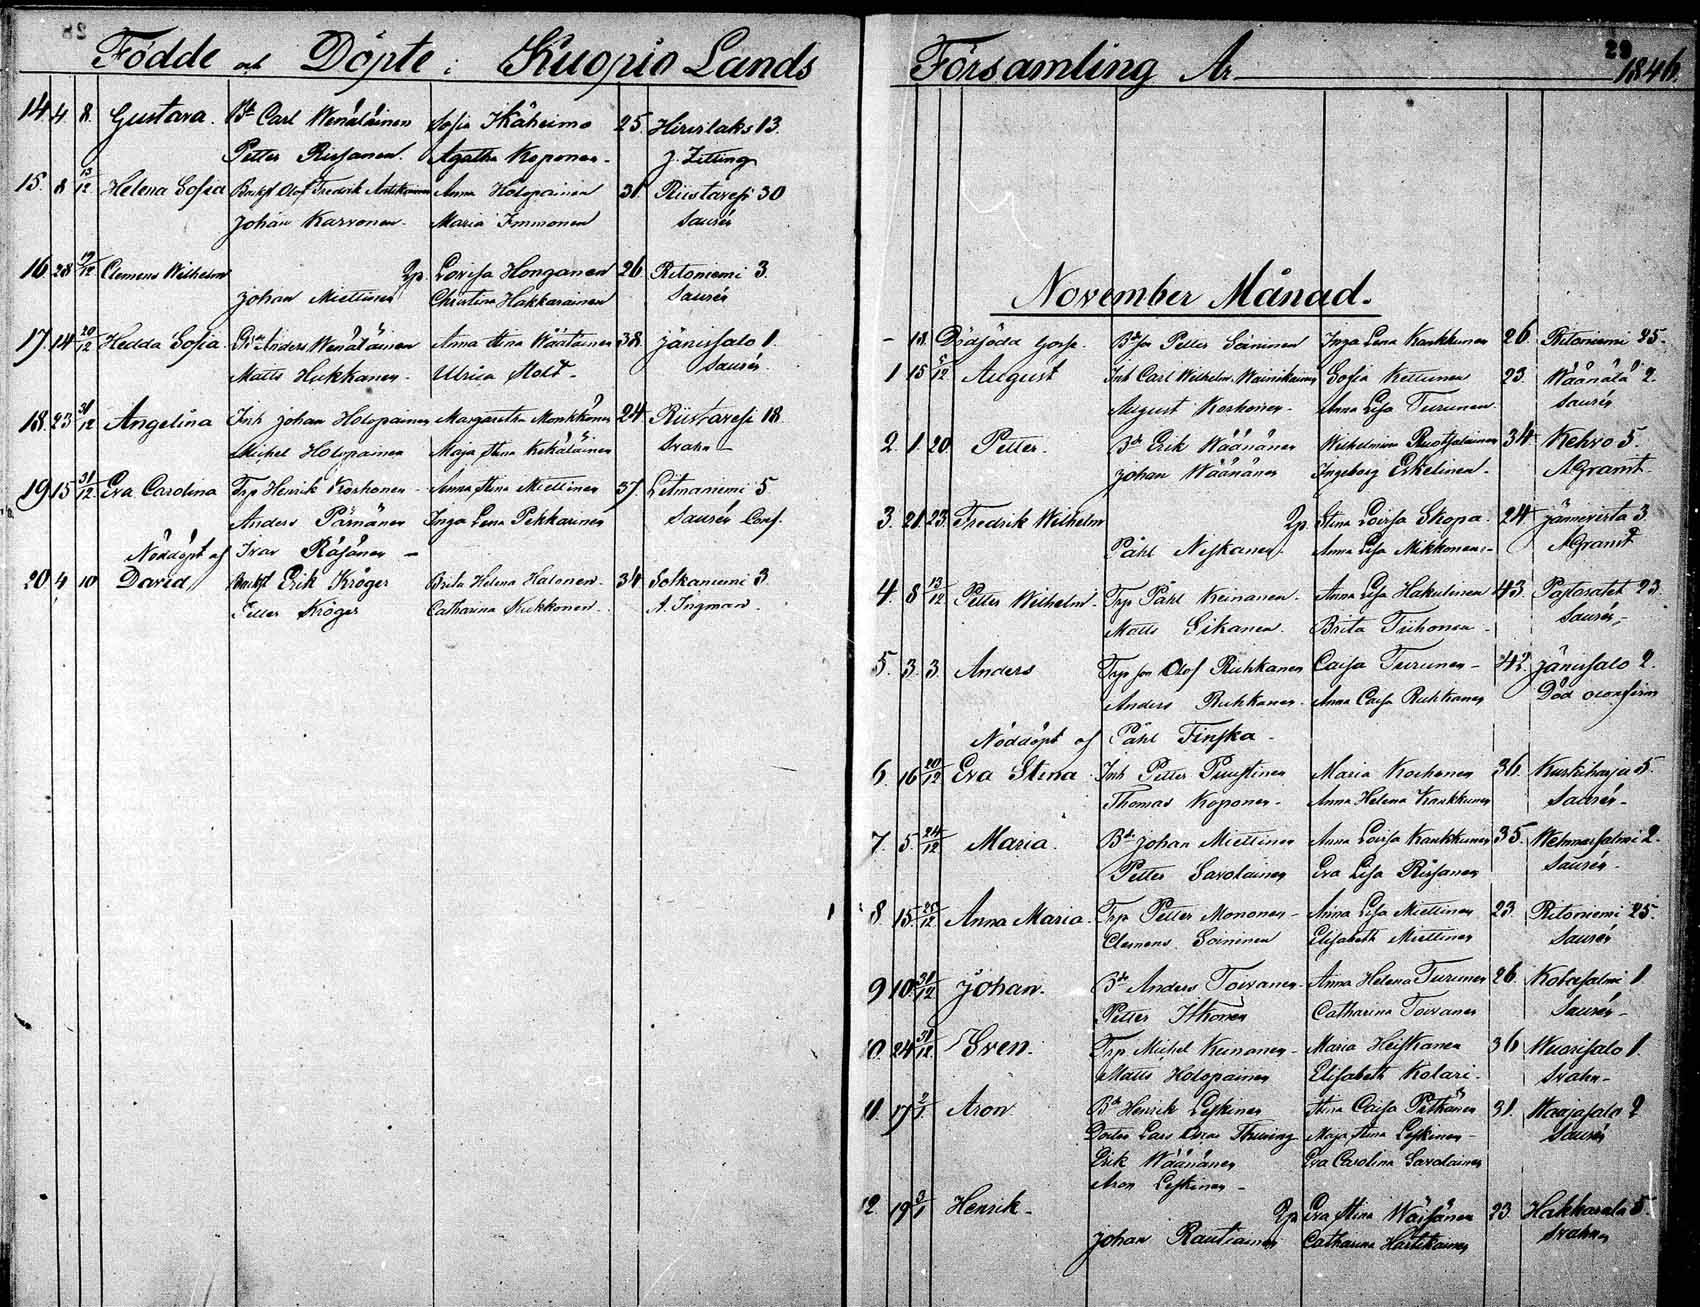 28
Födde och Döpte i Kuopio Lands
14. 4 8. Gustava. Bd Carl Wenäläinen Sofia Ikäheimo 25. Hirvilaks 13.
Petter Rissanen. Agatha Koponen J. Zitting
15. 8 13/12 Helena Sofia Olof Fredrik Anna Holopainen 31. Riistavesi 30
Johan Karvonen. Maria Immonen Saurén
16. 28 19/12 Clemens Wilhelm Qp. Lovisa Honganen 26. Ritoniemi 3.
Johan Miettinen Christina Hakkarainen Saurén
17. 14 20/12 Hedda Sofia. Anders Wenäläinen Anna Stina Wäätäinen 38. Jänissalo 1.
Matts Hukkanen. Ulrica Mold Saurén
18. 23 31/12 Angelina Inh Johan Holopainen Margaretha Monkkönen 24 Riistavesi 18
Michel Holopainen Maja Stina Kekäläinen Svahn
19 15 31/12 Eva Carolina Trp Henrik Korhonen Anna Stina Miettinen 37 Litmaniemi 5
Anders Pärnänen Inga Lena Pekkarinen Saurén Conf.
Nöddöpt af Ivar Räsänen
20 4 10 David Erik Kröger Brita Helena Halonen 34 Sotkaniemi 3
Petter Kröger Catharina Kukkonen. A. Ingman.
29
Församling År 1846.
November Månad.
- 18. Dödfödd Gosse. Bdson Petter Soininen Inga Lena Kaukkunen 26. Ritoniemi 25.
1 15 5/12 August Inh Carl Wilhelm Wainikainen Sofia Kettunen 23. Wäänälä 2.
August Korhonen. Anna Lisa Turunen Saurén
2. 1. 20. Petter. Bd Erik Wäänänen Wilhelmina Ruotsalainen 34 Kehvo 5.
Johan Wäänänen Ingeborg Eskelinen. A Granit
3. 21. 23. Fredrik Wilhelm Qp Stina Lovisa Skopa. 24 Jännevirta 3.
Påhl Niskanen. Anna Lisa Mikkonen. A Granit
4. 8 13/12 Petter Wilhelm. Trp Påhl Keinanen. Anna Lisa Hakulinen 43. Pastoratet 23.
Matts Sikanen. Brita Tiihonen Saurén
5. 3. 3. Anders Trp son Olof Ruhkanen Caisa Turunen 42. Jänissalo 2.
Anders Ruhkanen. Anna Caisa Ruhkanen Död oconfirm
Nöddöpt af Påhl Finska
6. 16 20/12 Eva Stina Inh Petter Puustinen Maria Korhonen 36. Kurkiharju 5.
Thomas Koponen. Anna Helena Kaukkunen Saurén
7. 5. 24/12 Maria. Bd Johan Miettinen Anna Lovisa Kaukkunen 35. Wehmersalmi 2.
Petter Savolainen Eva Lisa Rissanen Saurén
8 15 25/12 Anna Maria. Trp Petter Mononen Anna Lisa Miettinen 23. Ritoniemi 25.
Clemens Soininen Elisabeth Miettinen Saurén
9 10. 31/12 Johan. Bd Anders Toivanen. Anna Helena Turunen 26. Kolosalmi 1
Petter Itkonen Catharina Toivanen Saurén
10. 24 31/12 Sven. Trp Michel Keinonen Maria Heiskanen 36 Wuorisalo 1.
Matts Holopainen Elisabeth Kolari. Svahn
11. 17 2/1 Aron Bd Henrik Leskinen Stina Caisa Pitkänen 31. Waajasalo 2
Lars Thuring Maja Stina Leskinen Saurén
Erik Wäänänen Eva Carolina Savolainen
Aron Leskinen
12 19 3/1 Henrik Qp Eva Stina Wäisänen 23. Hakkarala 5.
Johan Rautiainen Catharina Hartikainen Svahn